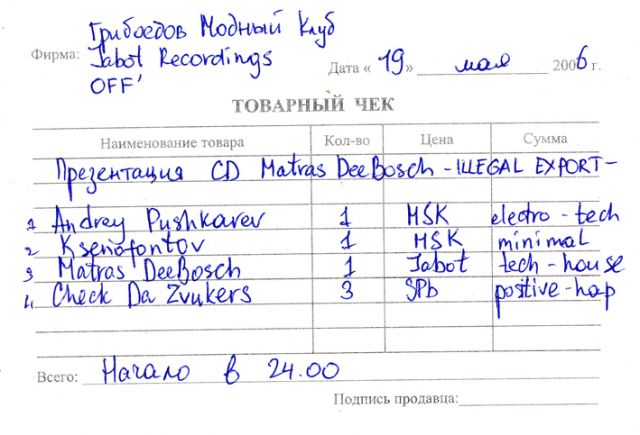 Грибоедов Модный Клуб
Фирма: Jabot Recordings
OFF'
Дата « 19 » мая 2006 г.
ТОВАРНЫЙ ЧЕК
Наименование товара Кол-во Цена Сумма
Презентация CD Matras DeeBosch - ILLEGAL EXPORT -
1 Andrey Pushkarev 1 MSK electro - tech
2 Ksenofontov 1 MSK minimal
3 Matras DeeBosch 1 Jabot tech - house
4 Check Da Zvukers 3 SPb positive - hop
Всего: Начало в 24.00
Подпись продавца: